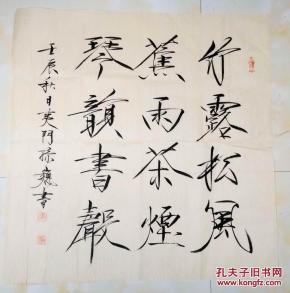 竹露松風
蕉雨茶煙
琴韻書聲
壬辰秋日吴門孫巍書
孔夫子旧书网